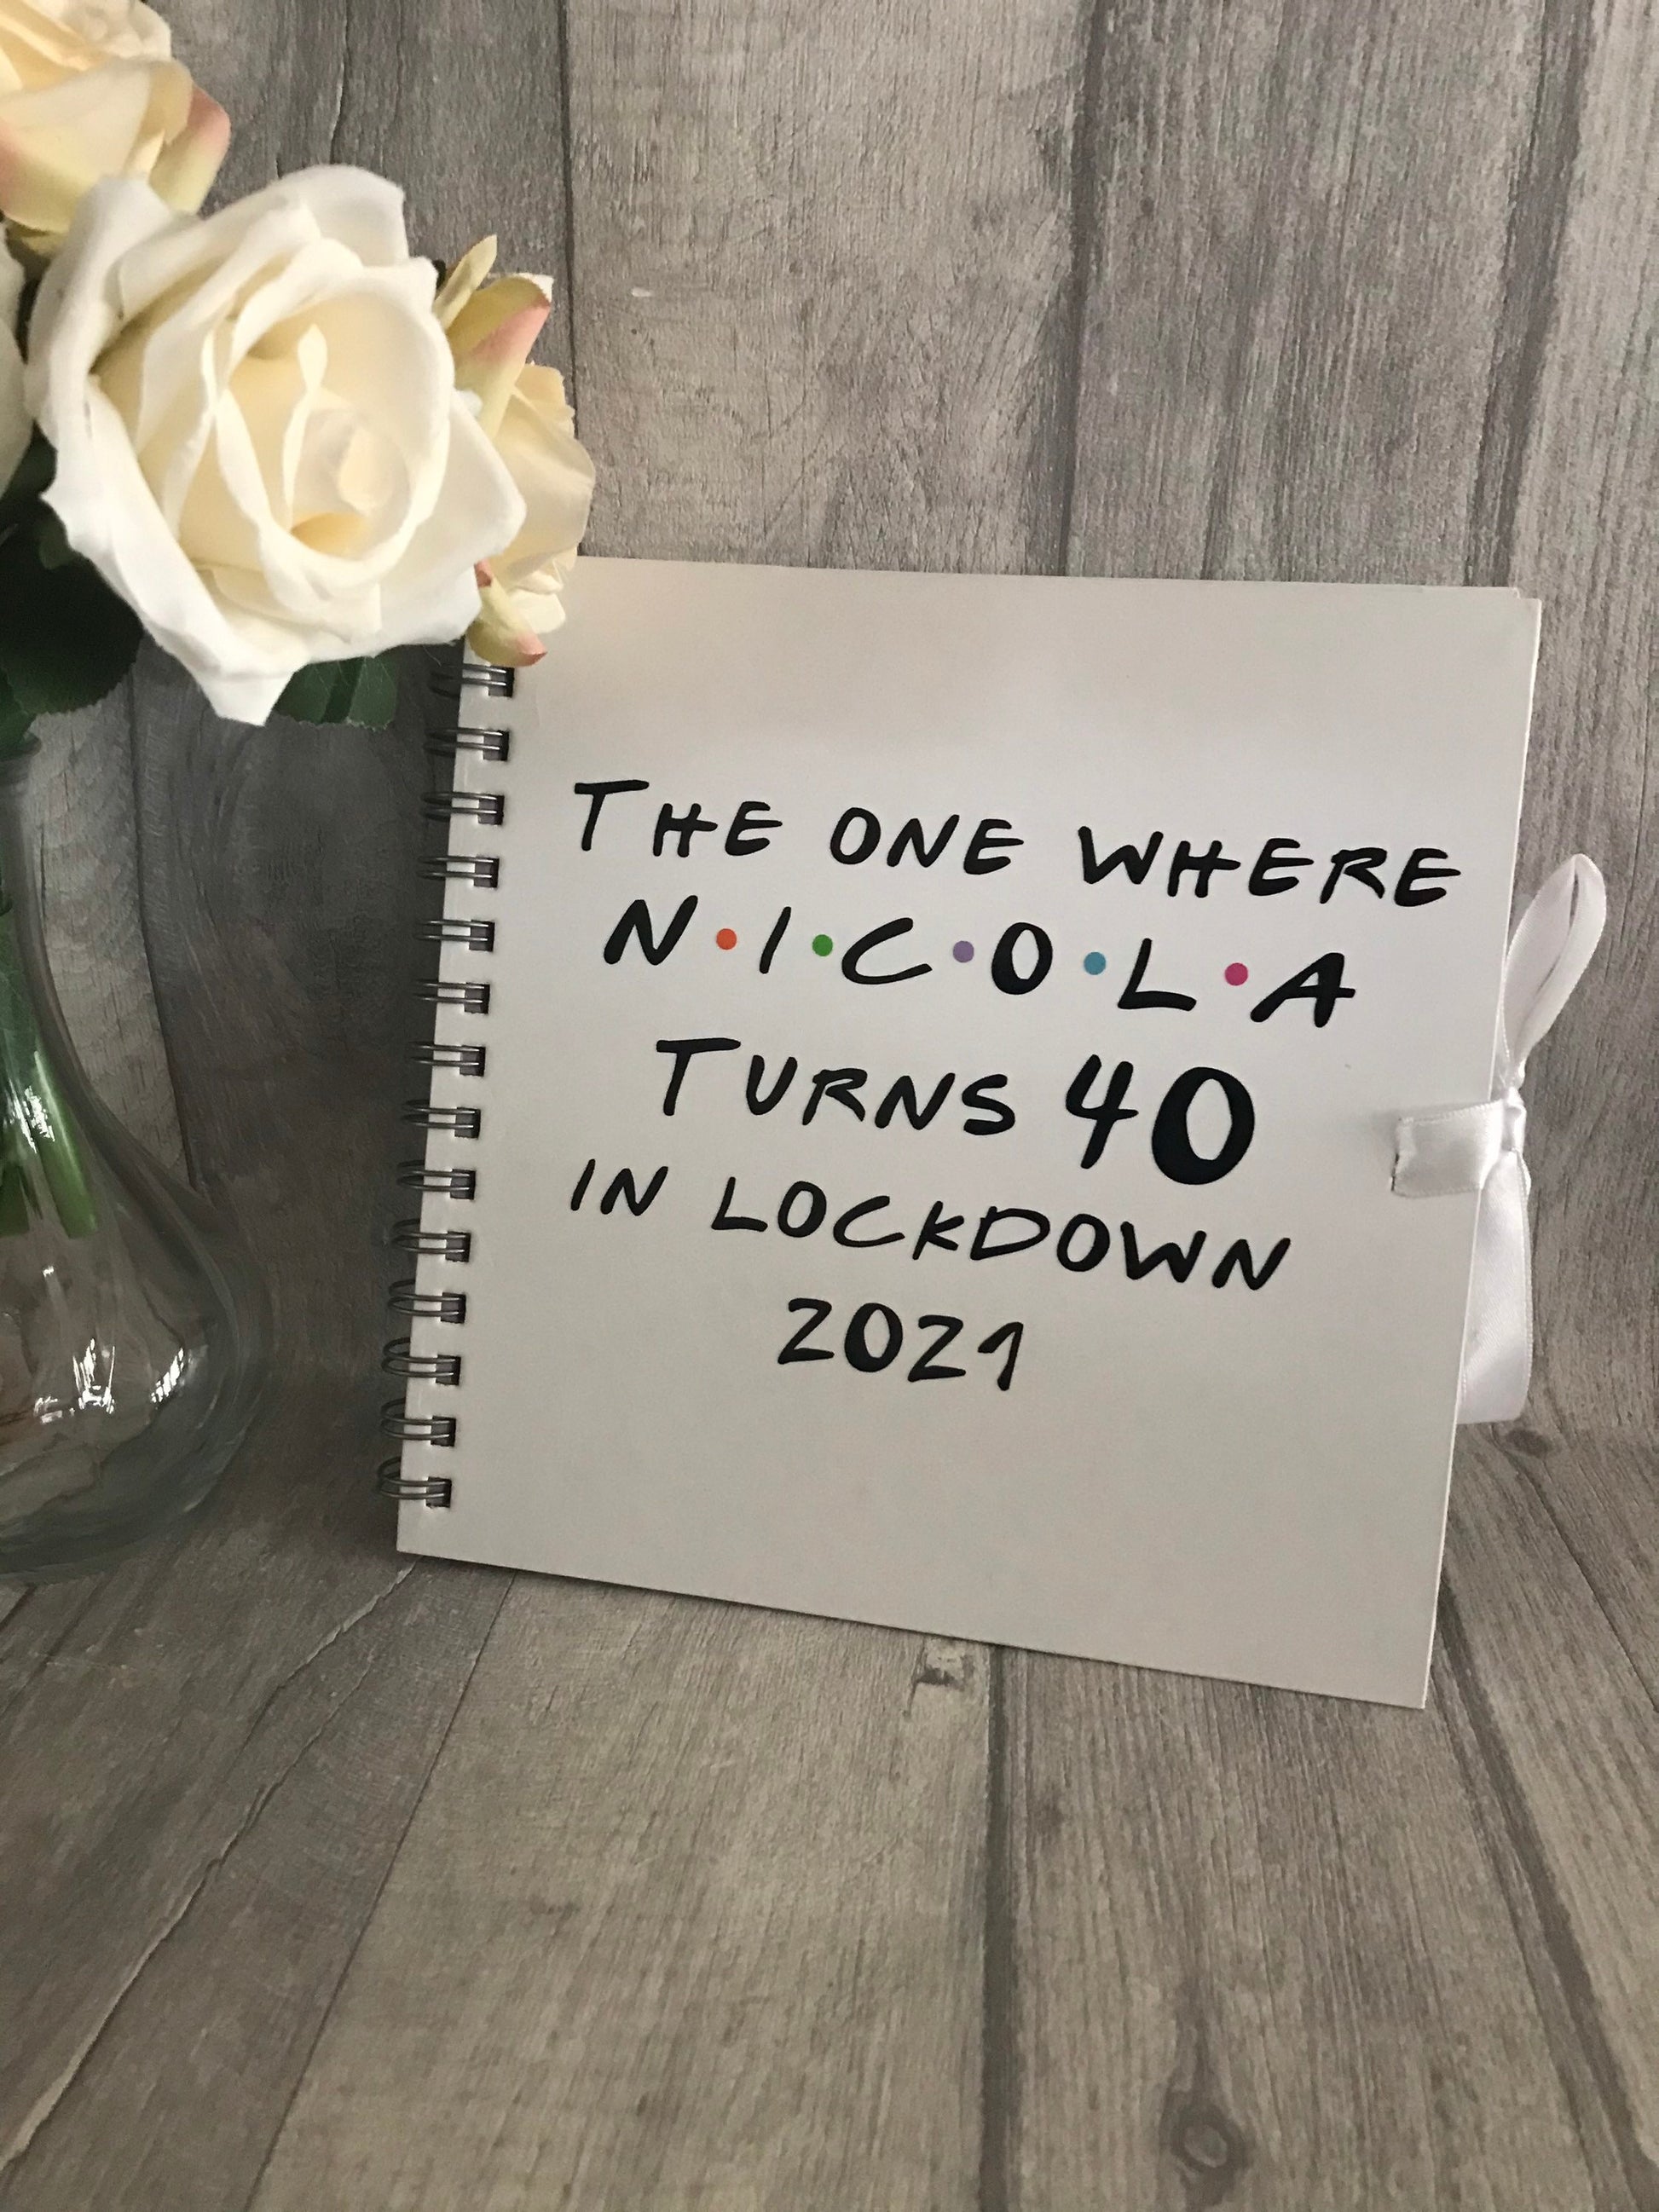 THE ONE WHERE
N•I•C•O•L•A
TURNS 40
IN LOCKDOWN
2021